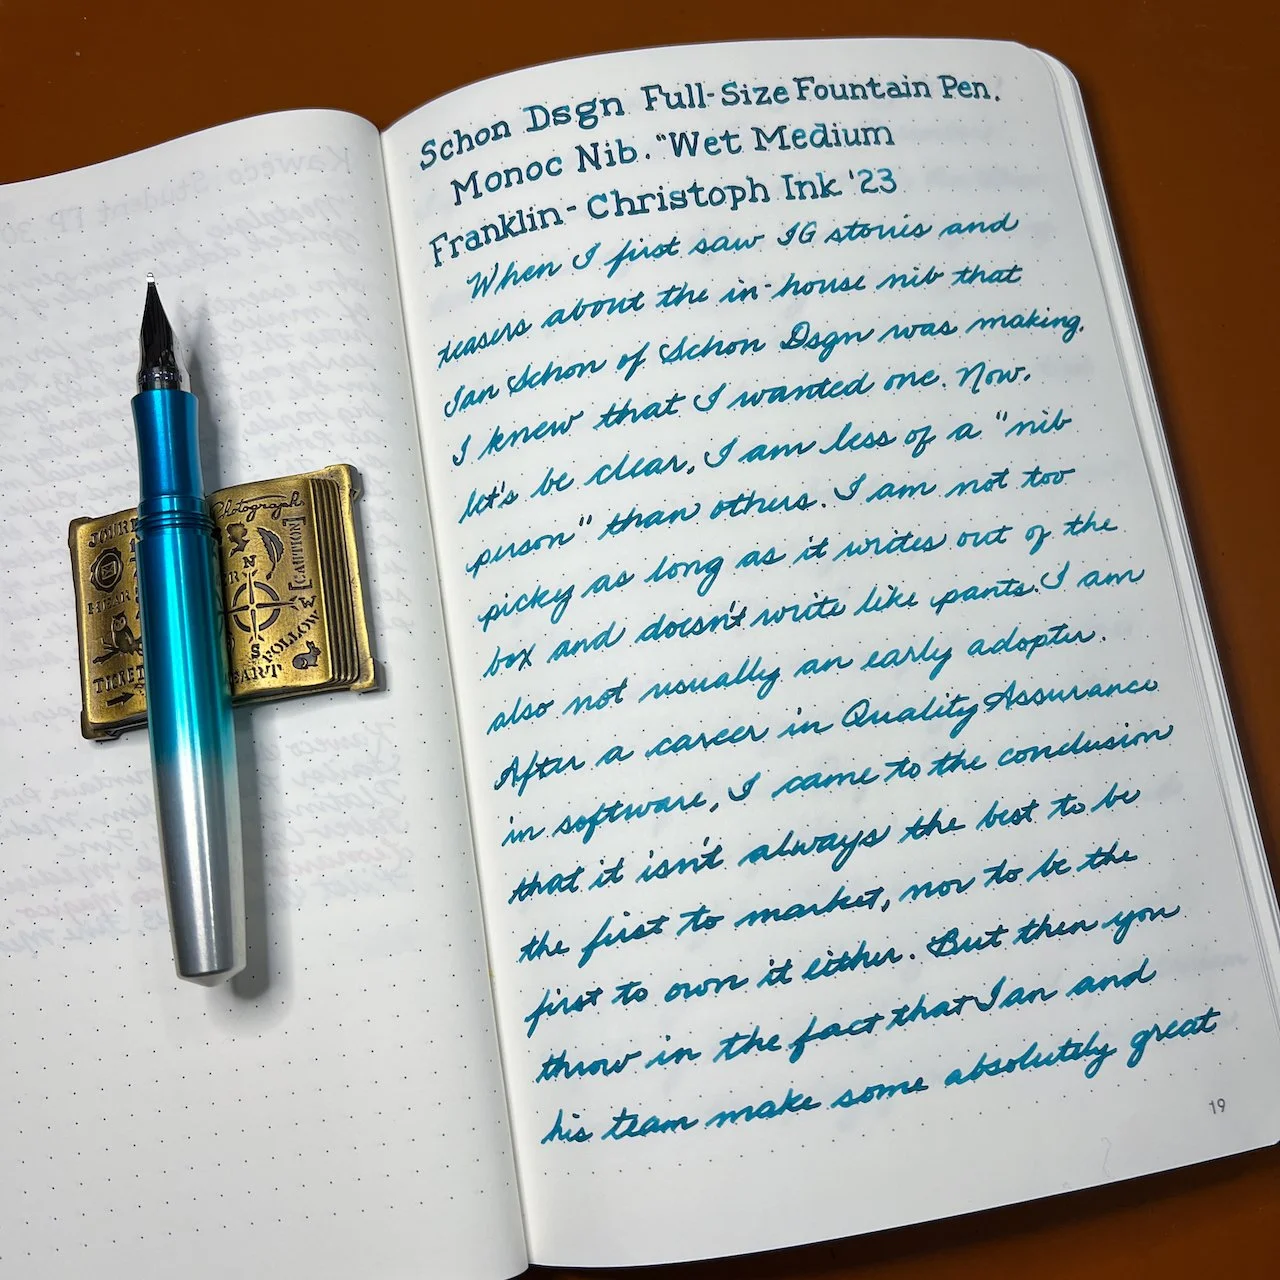 Schon Dsgn Full-Size Fountain Pen.
Monoc Nib. "Wet Medium
Franklin-Christoph Ink '23
When I first saw IG stories and
teasers about the in-house nib that
Ian Schon of Schon Dsgn was making,
I knew that I wanted one. Now,
let's be clear, I am less of a "nib
person" than others. I am not too
picky as long as it writes out of the
box and doesn't write like pants. I am
also not usually an early adopter.
After a career in Quality Assurance
in software, I came to the conclusion
that it isn't always the best to be
the first to market, nor to be the
first to own it either. But then you
throw in the fact that Ian and
his team make some absolutely great
19
Photograph
[CAUTION]
N
S
FOLLOW
TICKET